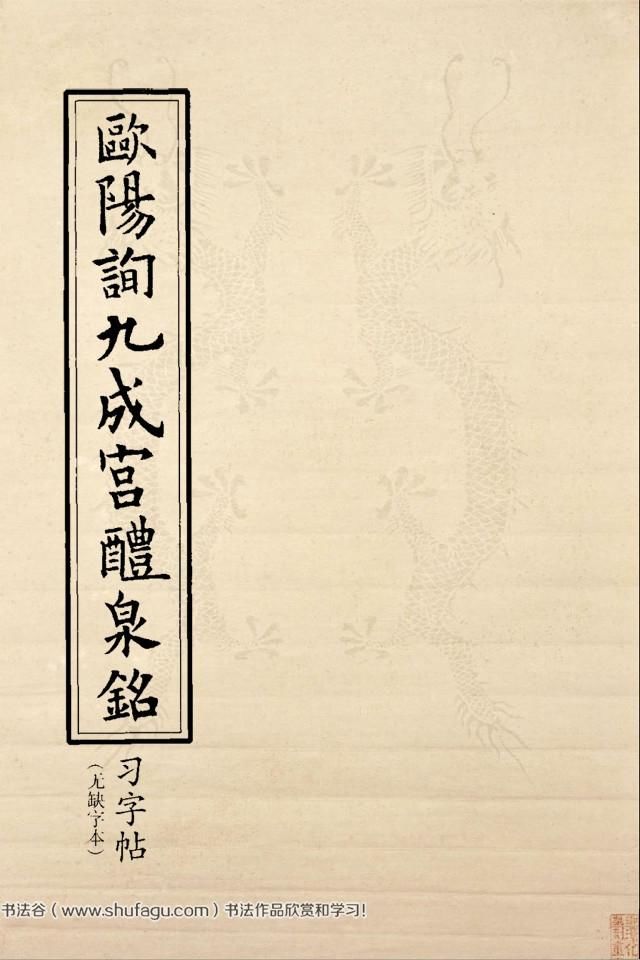 歐陽詢九成宮醴泉銘
习字帖
（无缺字本）
书法谷（www.shufagu.com）书法作品欣赏和学习！